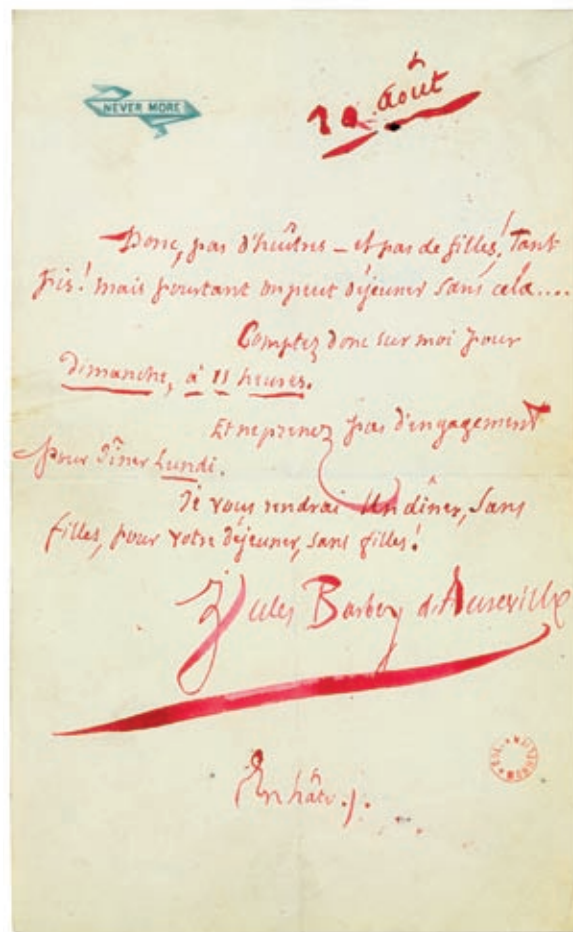 NEVER MORE
20 Août
Donc, pas d'huîtres — et pas de filles! Tant
pis! mais pourtant on peut déjeuner sans cela....
Comptez donc sur moi pour
Dimanche, à 11 heures.
Et ne prenez pas d'engagement
pour dîner Lundi.
Je vous rendrai un dîner, sans
filles, pour votre déjeuner, sans filles!
Jules Barbey d'Aurevilly
En hâte.